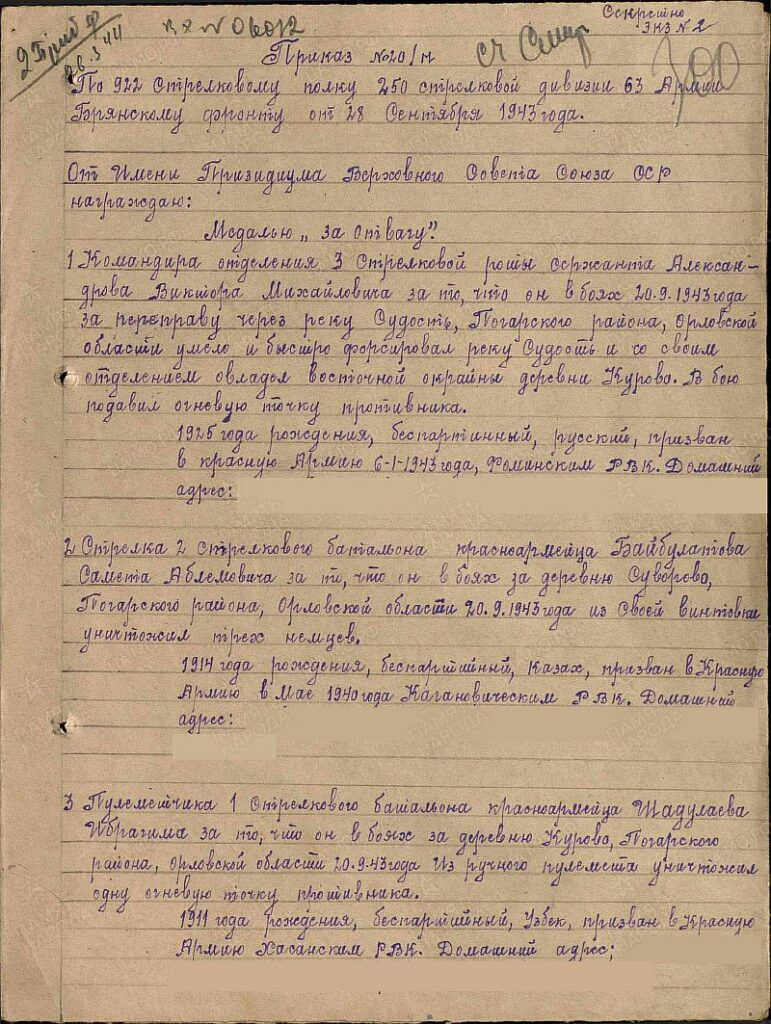 Секретно
экз № 2
вх № 06012
26.3.44
Приказ № 20/н
По 922 Стрелковому полку 250 стрелковой дивизии 63 Армии
Брянскому фронту от 28 Сентября 1943 года.
От Имени Призидиума Верховного Совета Союза ССР
награждаю:
Медалью „за отвагу".
1 Командира отделения 3 Стрелковой роты сержанта Алексан-
дрова Виктора Михайловича за то, что он в боях 20.9.1943 года
за переправу через реку Судость, Погарского района, Орловской
области умело и быстро форсировал реку Судость и со своим
отделением овладел восточной окрайны деревни Курова. В бою
подавил огневую точку противника.
1925 года рождения, беспартийный, русский, призван
в красную Армию 6-1-1943 года, Фоминским РВК. Домашний
адрес:
2 Стрелка 2 стрелкового батальона красноармейца Байбулатова
Самета Аблемовича за то, что он в боях за деревню Суворово,
Погарского района, Орловской области 20.9.1943 года из Своей винтовки
уничтожил трех немцев.
1914 года рождения, беспартийный, казах, призван в Красную
Армию в Мае 1940 года Кагановическим РВК. Домашний
адрес:
3 Пулеметчика 1 Стрелкового батальона красноармейца Шадулаева
Ибрагима за то, что он в боях за деревню Курово, Погарского
района, Орловской области 20.9.43 года Из ручного пулемета уничтожил
одну огневую точку противника.
1911 года рождения, беспартийный, Узбек, призван в Красную
Армию Хасанским РВК. Домашний адрес;